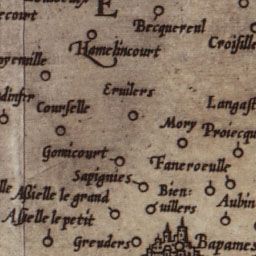 E
Becquereul
ecourt
Hamelincourt
Croisille
oyemuille
Eruilers
dinfer
Courselle
Langast
Mory
Proiecqu
Gomicourt
Faneroeulle
Sapignies
lle
Assielle le grand
Bien:
uillers
Aubin
Assielle le petit
Greuders
Bapames